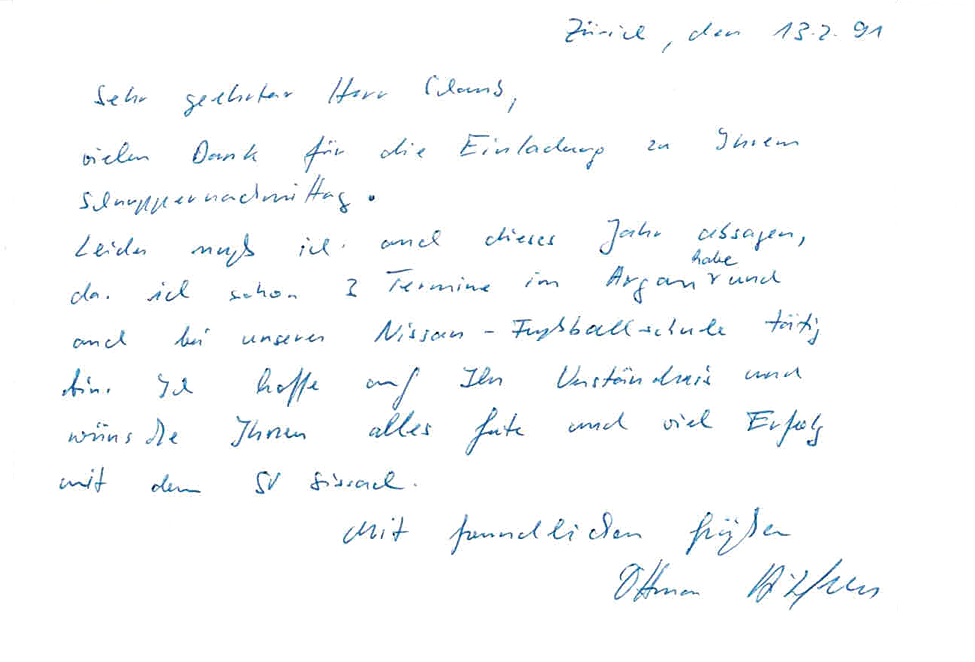 Zürich, den 13.2.91
Sehr geehrter Herr
vielen Dank für die Einladung zu Ihrem
Schnuppernachmittag.
Leider muß ich auch dieses Jahr absagen,
habe
da ich schon 3 Termine im Aargau und
auch bei unserer Nissan-Fußballschule tätig
bin. Ich hoffe auf Ihr Verständnis und
wünsche Ihnen alles Gute und viel Erfolg
mit dem SV Sissach.
Mit freundlichen Grüßen
Ottmar Hitzfeld